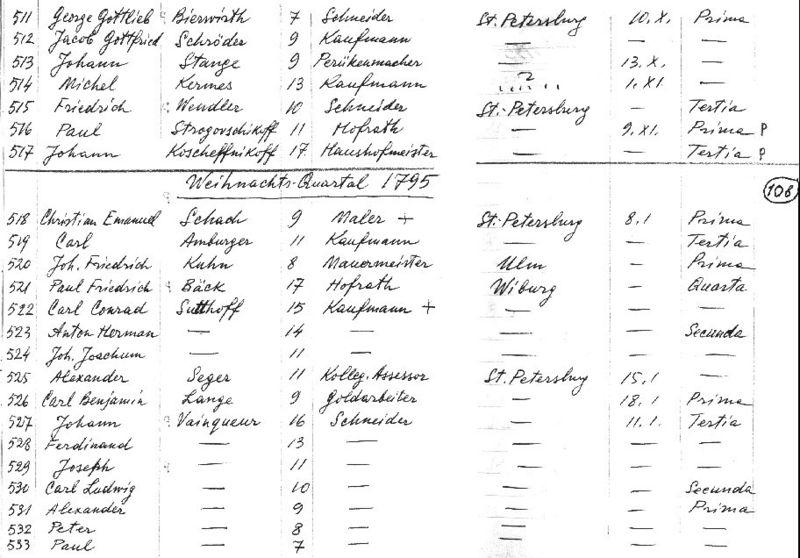 511 George Gottlieb Bierwirth 7 Schneider St. Petersburg 10. X. Prima
512 Jacob Gottfried Schröder 9 Kaufmann — — —
513 Johann Stange 9 Perükenmacher — 13. X. —
514 Michel Kermes 13 Kaufmann ? 1. XI. —
515 Friedrich Wendler 10 Schneider St. Petersburg — Tertia
516 Paul Strogovschikoff 11 Hofrath — 9. XI. Prima ?
517 Johann Koscheffnikoff 17 Haushofmeister — — Tertia ?
Weihnachts-Quartal 1795
108
518 Christian Emanuel Schach 9 Maler + St. Petersburg 8.1 Prima
519 Carl Amburger 11 Kaufmann — — Tertia
520 Joh. Friedrich Kuhn 8 Mauermeister Ulm — Prima
521 Paul Friedrich Bäck 17 Hofrath Wiburg — Quarta
522 Carl Conrad Sutthoff 15 Kaufmann + — — —
523 Anton Herman — 14 — — — Secunda
524 Joh. Joachum — 11 — — — —
525 Alexander Seger 11 Kolleg. Assessor St. Petersburg 15.1 —
526 Carl Benjamin Lange 9 Goldarbeiter — 18.1 Prima
527 Johann Vainqueur 16 Schneider — 11.1. Tertia
528 Ferdinand — 13 — — — —
529 Joseph — 11 — — — —
530 Carl Ludwig — 10 — — — Secunda
531 Alexander — 9 — — — Prima
532 Peter — 8 — — — —
533 Paul — 7 — — — —